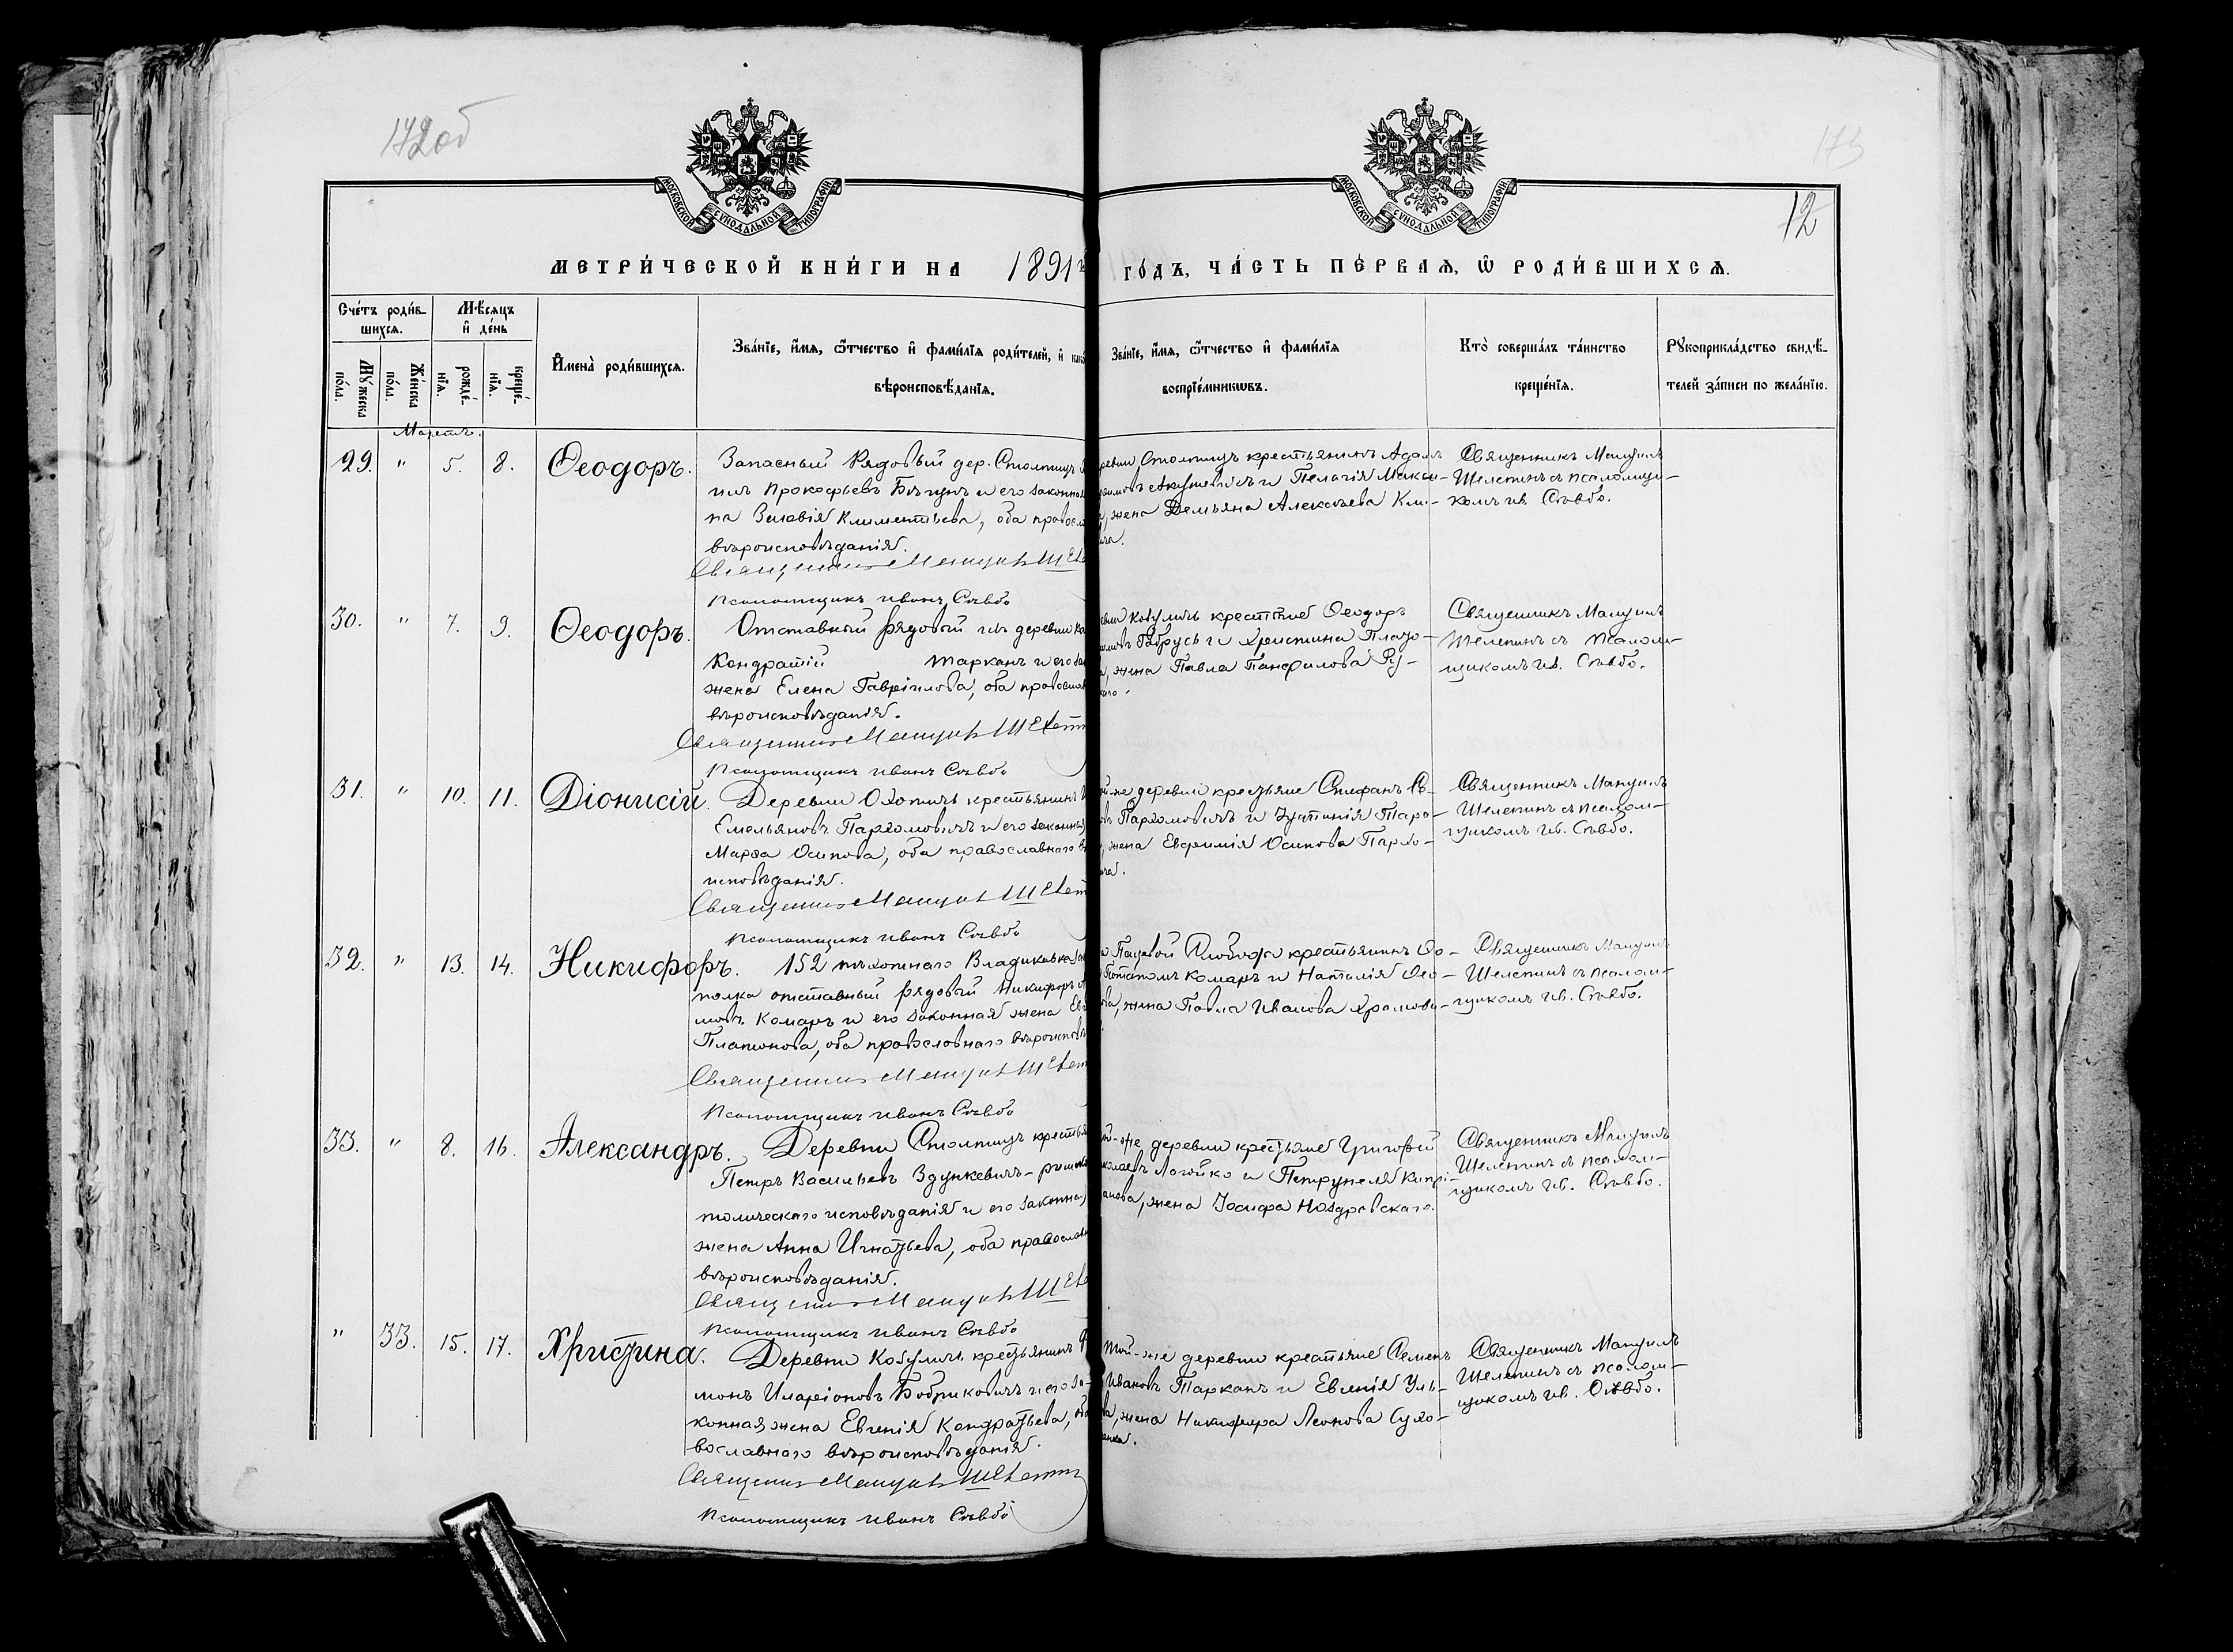 172об
173
12
МОСКОВСКОЙ СѴНОДАЛЬНОЙ ТИПОГРАФІИ
МОСКОВСКОЙ СѴНОДАЛЬНОЙ ТИПОГРАФІИ
МЕТРИ́ЧЕСКОЙ КНИ́ГИ НА 1891 ГО́ДЪ, ЧА́СТЬ ПЕ́РВАѦ, Ѡ РОДИ́ВШИХСѦ.
Сче́тъ роди́в-
шихсѧ.
Мѣ́сѧцъ
и де́нь
Мꙋ́жеска по́ла.
Же́нска по́ла.
рожде́-нїѧ.
креще́-нїѧ.
И҆мена̀ роди́вшихсѧ.
Зва́нїе, и҆́мѧ, ѻ҆́тчество и҆ фами́лїѧ роди́телей, и҆
вѣроисповѣ́данїѧ.
Зва́нїе, и҆́мѧ, ѻ҆́тчество и҆ фами́лїѧ
воспрїе́мникѡвъ.
Кто̀ соверша́лъ та́инство
креще́нїѧ.
Рꙋкоприкла́дство свидѣ́-
телей за́писи по жела́нїю.
Мартъ.
29. " 5. 8. Ѳеодоръ.
Запасный рядовый дер. Столпищъ
Прокофьевъ Бѣгунъ и его законная
на Зиновія Климентьева, оба правосл
вѣроисповѣданія.
Священникъ Мануилъ Шеле
Псаломщикъ Иванъ Съвбо
Столпищъ крестьянинъ Адамъ
и Пелагія Макси-
жена Демьяна Алексѣева Кли-
ча.
Священникъ Мануилъ
Шелепинъ съ псаломщи-
комъ Ив. Съвбо.
30. " 7. 9. Ѳеодоръ.
Отставный рядовый изъ деревни Ко
Кондратій Тарканъ и его за
жена Елена Гавріилова, оба православ
вѣроисповѣданія.
Священникъ Мануилъ Шелеп
Псаломщикъ Иванъ Съвбо
Кобуличъ крестьяне Ѳеодоръ
Габрусь и Христина Плато-
жена Павла Панфилова Ру-
Священникъ Мануилъ
Шелепинъ съ псалом-
щикомъ Ив. Съвбо.
31. " 10. 11. Діонисій.
Деревни Охотичъ крестьянинъ
Емельяновъ Пархомовичъ и его законная
Марѳа Осипова, оба православнаго вѣ
исповѣданія.
Священникъ Мануилъ Шелеп
Псаломщикъ Иванъ Съвбо
же деревни крестьяне Стефанъ
Пархомовичъ и Тара-
жена Евфимія Осипова Пархо-
Священникъ Мануилъ
Шелепинъ съ псалом-
щикомъ Ив. Съвбо.
32. " 13. 14. Никифоръ.
152 пѣхотнаго Владикавказ
полка отставный рядовый Никифоръ
мовъ Комаръ и его законная жена Ев
Платонова, оба православнаго вѣроисповѣ
Священникъ Мануилъ Шелеп
Псаломщикъ Иванъ Съвбо
Пацевой Слободы крестьянинъ Ѳо-
Комаръ и Наталія Ѳео-
жена Павла Иванова Храмови-
Священникъ Мануилъ
Шелепинъ съ псалом-
щикомъ Ив. Съвбо.
33. " 8. 16. Александръ.
Деревни Столпищъ крестья
Петръ Васильевъ Здункевичъ-римско
толическаго исповѣданія и его законная
жена Анна Игнатьева, оба православ
вѣроисповѣданія.
Священникъ Мануилъ Шеле
Псаломщикъ Иванъ Съвбо
же деревни крестьяне Григорій
Логойко и Петрунеля Кипрі-
анова, жена Іосифа Ноздровскаго.
Священникъ Мануилъ
Шелепинъ съ псалом-
щикомъ Ив. Съвбо.
" 33. 15. 17. Христина.
Деревни Кобуличъ крестьянинъ
монъ Иларіоновъ Бобриковичъ и его за-
конная жена Евгенія Кондратьева, оба
вославнаго вѣроисповѣданія.
Священникъ Мануилъ Шелепинъ
Псаломщикъ Иванъ Съвбо
Той-же деревни крестьяне Семенъ
Ивановъ Тарканъ и Евгенія Уль-
жена Никифора Леонова Сухо-
Священникъ Мануилъ
Шелепинъ съ псалом-
щикомъ Ив. Съвбо.